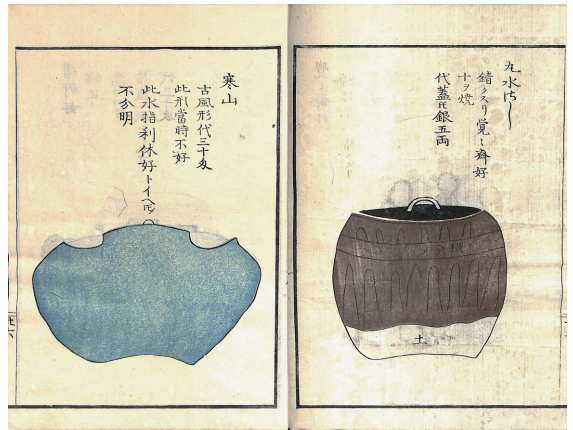 丸水さし
錆クスリ覚々斎好
十ヲ焼
代蓋𪜈銀五両
土
寒山
古風形代三十匁
此形當時不好
此水指利休好トイヘ𪜈
不分明